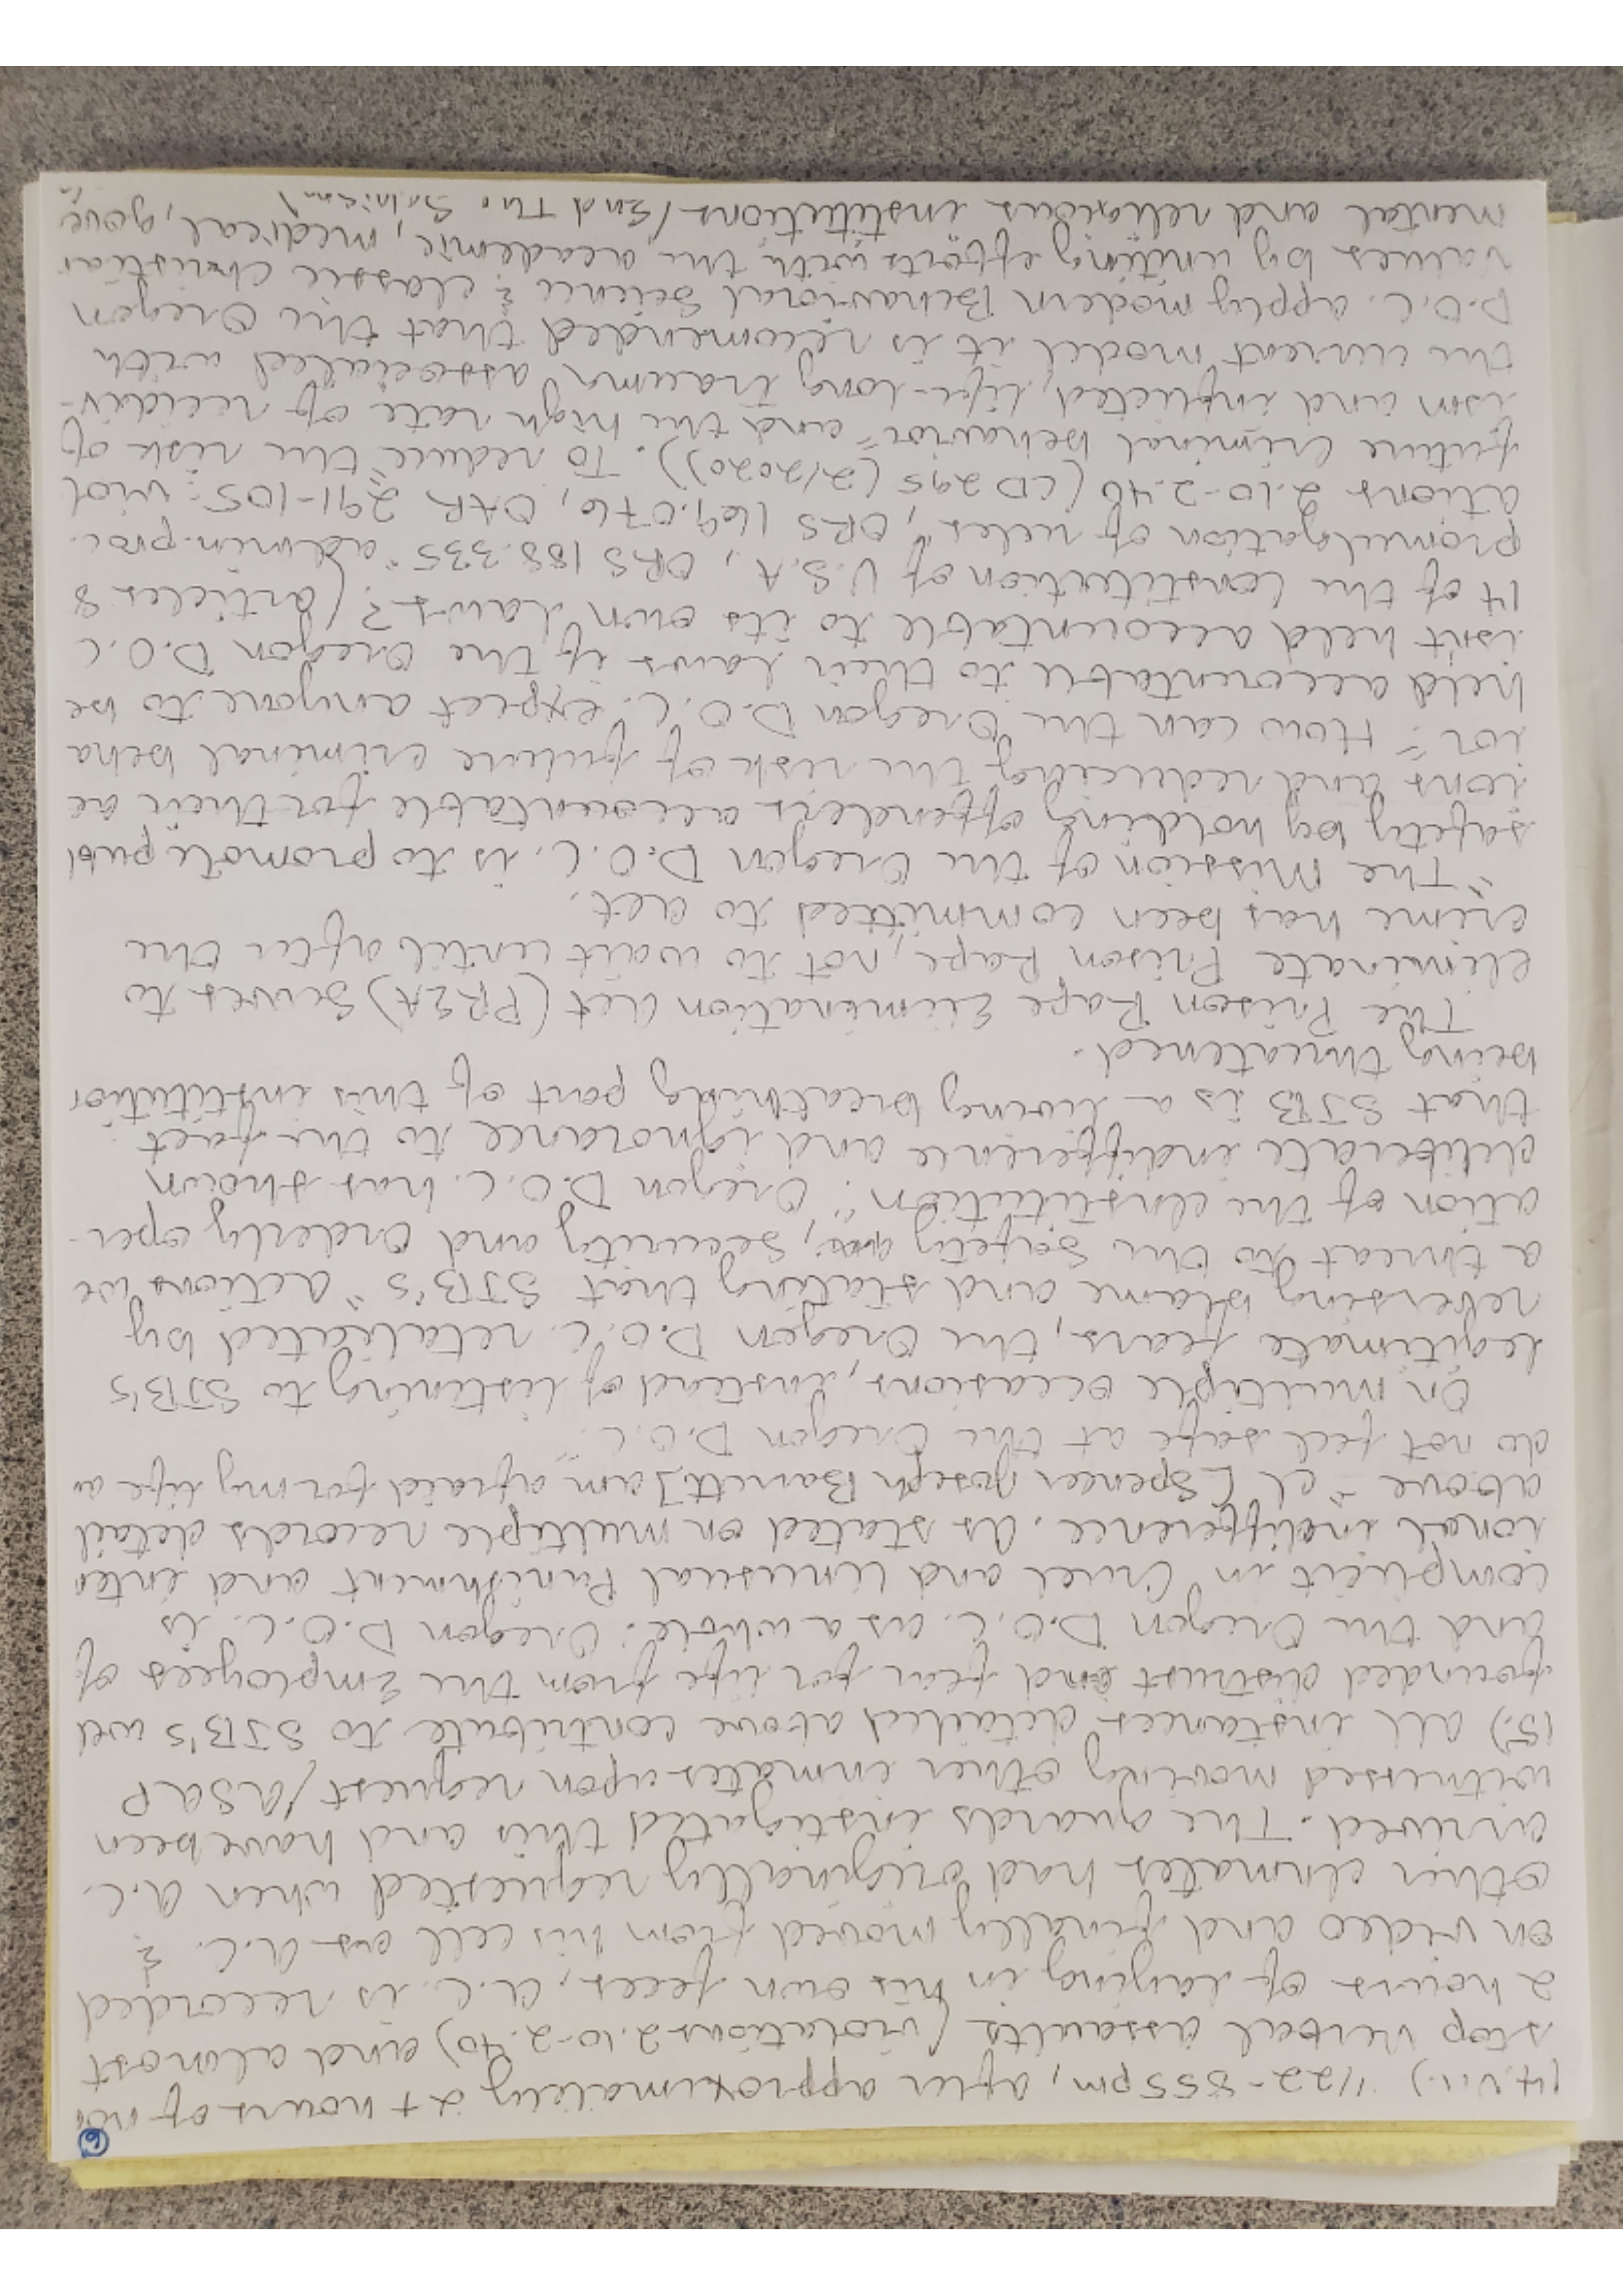 6
14.vii.) 1/22-855pm, after approximately 2+ hours of non
stop verbal assaults (violations 2.10-2.40) and almost
2 hours of laying in his own feces, A.C. is recorded
on video and finally moved from his cell as A.C. &
other inmates had originally requested when A.C.
arrived. The guards instigated this and have been
witnessed moving other inmates upon request / ASAP
15.) All instances detailed above contribute to SJB's well
founded distrust and fear for life from the Employees of
and the Oregon D.O.C. as a whole. Oregon D.O.C. is
complicit in Cruel and Unusual Punishment and inten
ional indifference. As stated on multiple records detail
above "I [Spencer Joseph Barrett] am afraid for my life a
do not feel safe at the Oregon D.O.C."
On multiple occasions, instead of listening to SJB's
legitimate fears, the Oregon D.O.C. retaliated by
reversing blame and stating that SJB's "actions we
a threat to the safety, security and orderly oper-
ation of the institution". Oregon D.O.C. has shown
deliberate indifference and ignorance to the fact
that SJB is a living breathing part of this institution
being threatened.
The Prison Rape Elimination Act (PREA) serves to
eliminate Prison Rape, not to wait until after the
crime has been committed to act.
"The Mission of the Oregon D.O.C. is to promote publ
safety by holding offenders accountable for their ac
ions and reducing the risk of future criminal beha
ior". How can the Oregon D.O.C. expect anyone to be
held accountable to their laws if the Oregon D.O.C
isn't held accountable to its own laws? (Articles 8
14 of the Constitution of U.S.A, ORS 183.335 "admin. proc.
promulgation of rules", ORS 169.076, OAR 291-105: viol
ations 2.10-2.40 (CD 295 (2/2020)). To reduce "the risk of
future criminal behavior" and the high rate of recidiv-
ism and inflicted, life-long trauma associated with
the current model it is recomended that the Oregon
D.O.C. apply modern Behavioral Science & classic Christian
values by uniting efforts with the academic, medical, gove
mental and religious institutions (End The